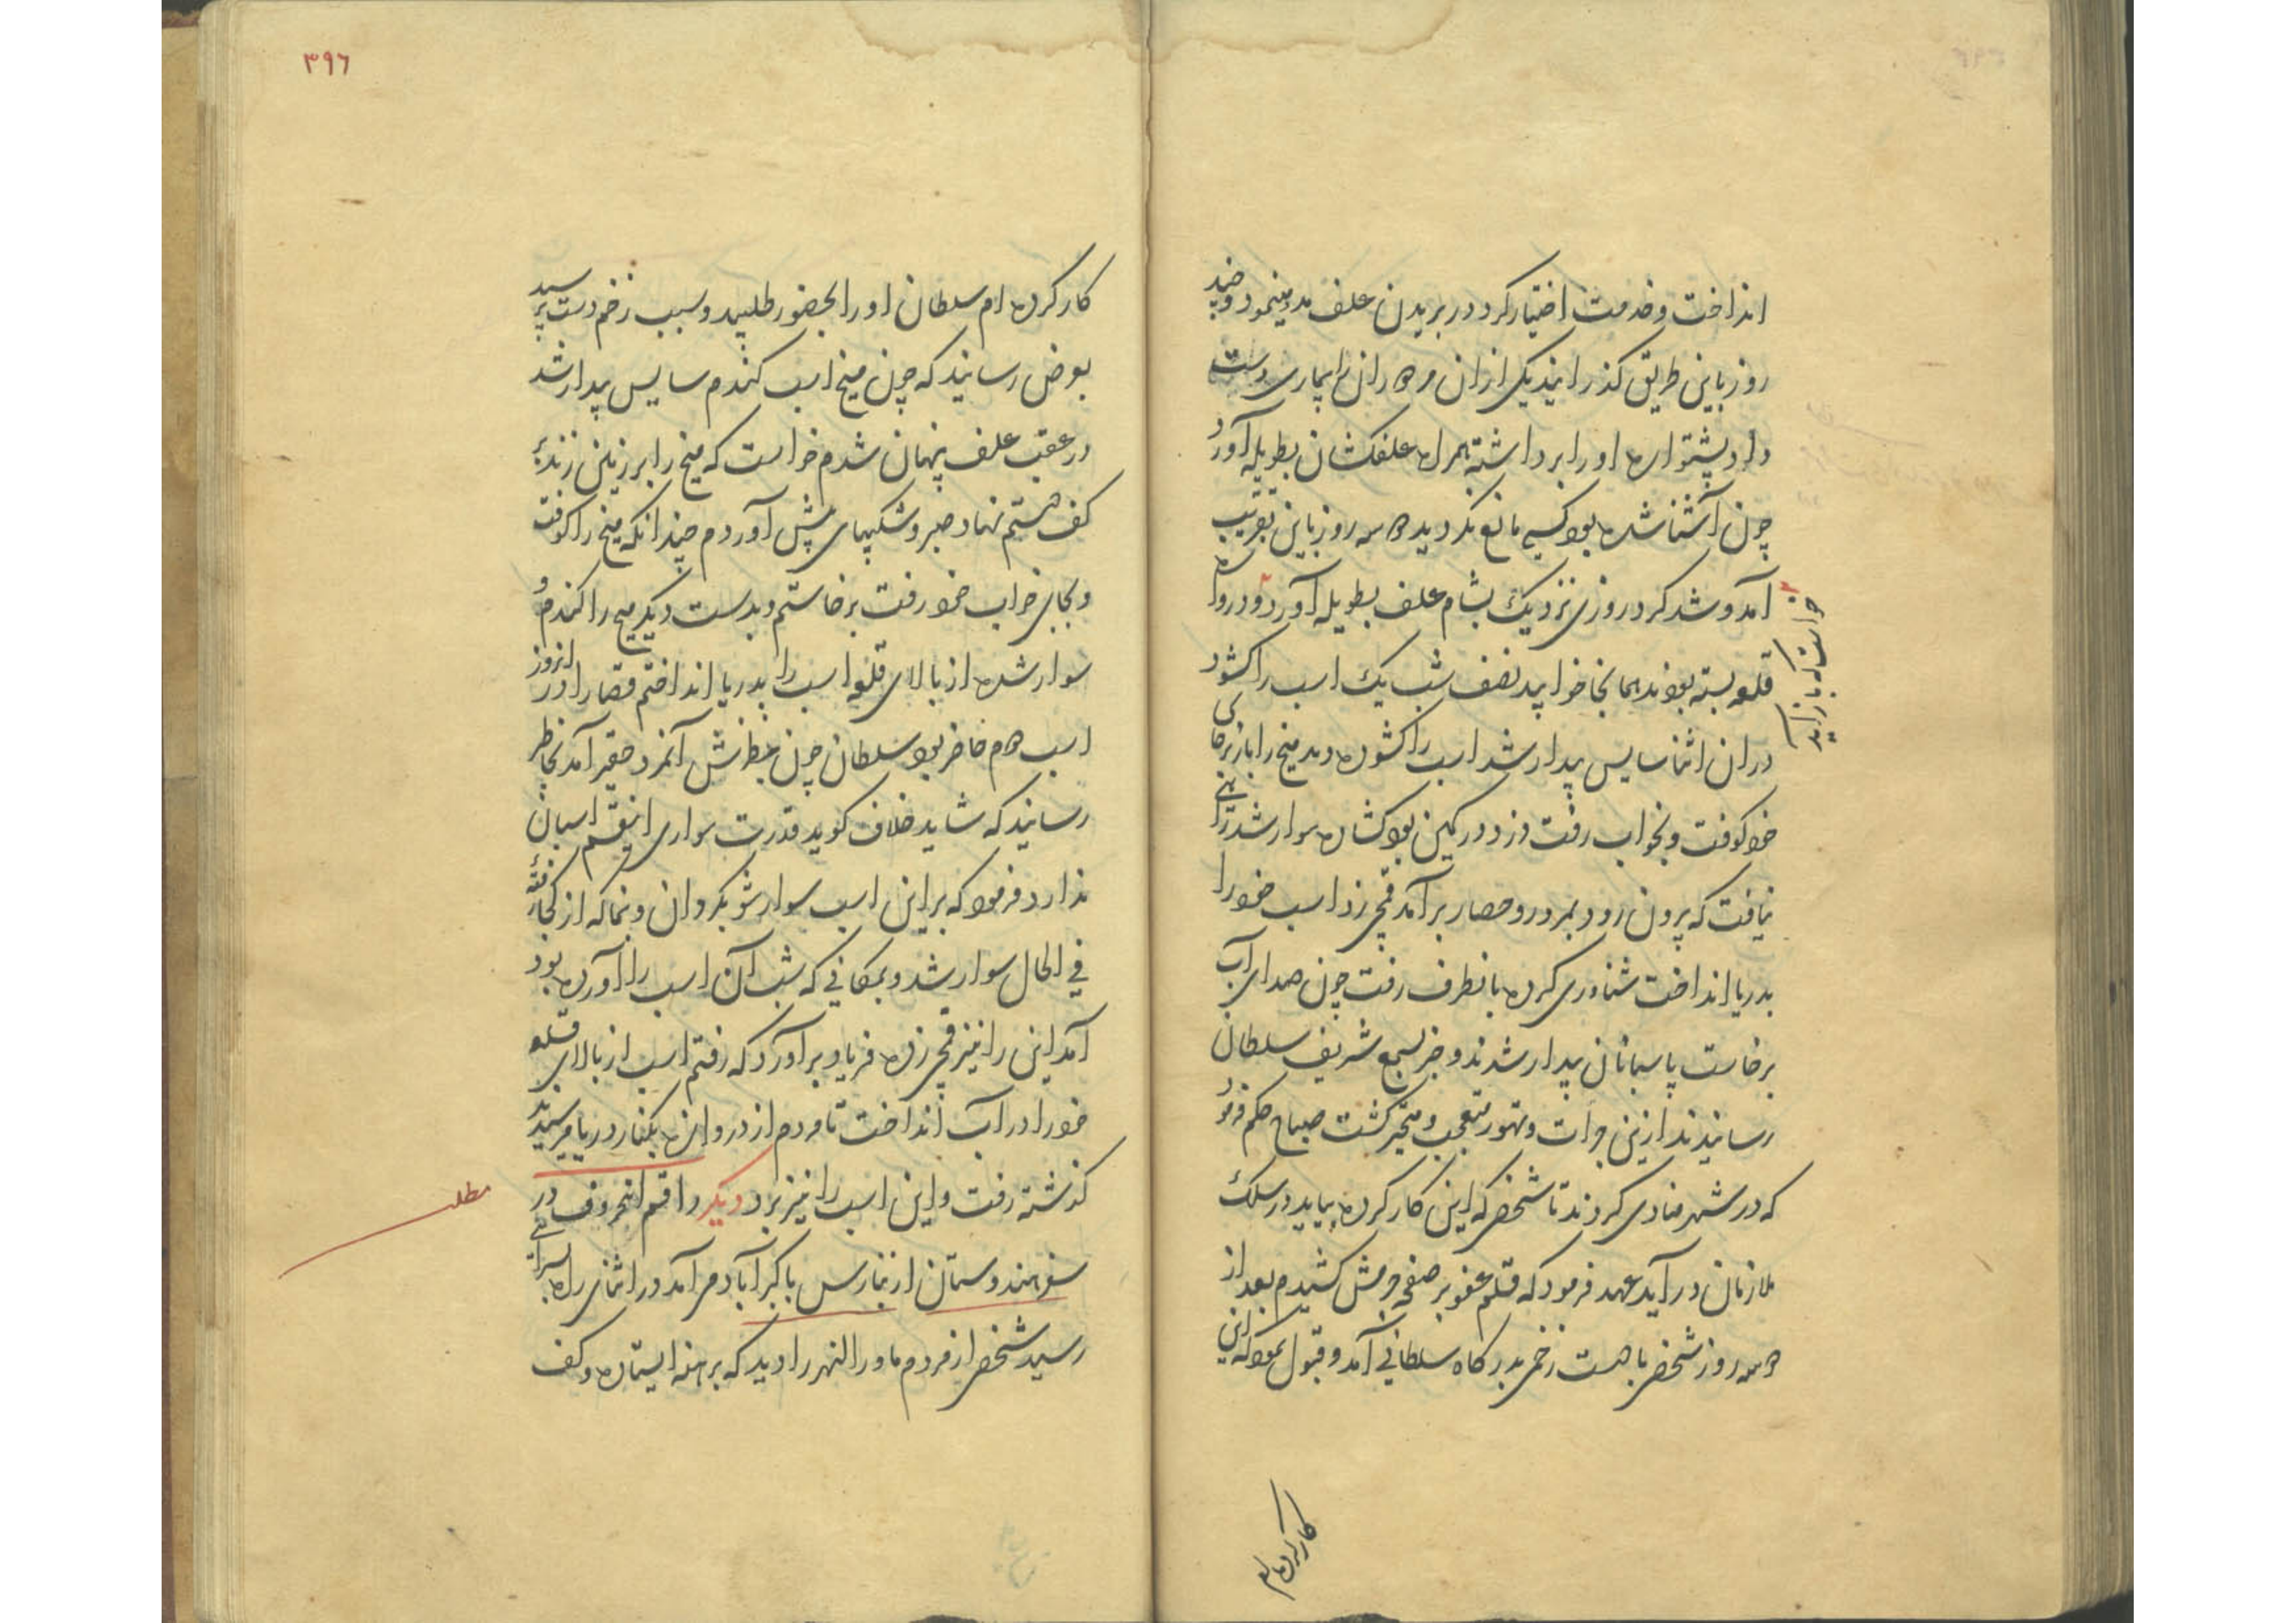 انداخت و خدمت اختیار کرد در بریدن علف مدد مینمود و چند
روز باین طریق گذرانید یکی از ان مزدوران را بیماری دست
داد پشتواره او را برداشته همراه علفکشان بطویله آورد
چون آشنا شده بود کسی مانع نگردید دو سه روز باین تقریب
آمد و شد کرد روزی نزدیک بشام علف بطویله آورد و دروازه
خواست که باز آید
قلعه بسته بودند همانجا خوابید نصف شب یک اسب را کشود
در ان اثنا سایس بیدار شد اسب را کشوده دید میخ را باز برجای
خود کوفت و بخواب رفت دزد در کمین بود کشاده سوار شد راهی
نیافت که برون رود بر در و حصار برآمد قمچی زد اسب خود را
بدریا انداخت شناوری کرده بانطرف رفت چون صدای آب
برخاست پاسبانان بیدار شدند و خبر بسمع شریف سلطان
رسانیدند ازین جرات و تهور متعجب و متحیر گشت صباح حکم فرمود
که در شهر منادی کردند تا شخصی که این کار کرده بیاید در سلک
ملازمان در آید عهد فرمود که قلم عفو بر صفحه جرمش کشیدم بعد از
دو سه روز شخصی با دست زخمی بدرگاه سلطانی آمد و قبول نمود که این
کار کرده ام
۳۹۶
کار کرده ام سلطان او را بحضور طلبید و سبب زخم دست پرسید
بعرض رسانید که چون میخ اسب کندم سایس بیدار شد
در عقب علف پنهان شدم خواست که میخ را بر زمین زند بر
کف دستم نهاد صبر و شکیبای پیش آوردم چندانکه میخ را کوفت
و بجای خواب خود رفت برخاستم و بدست دیگر میخ را کندم و
سوار شده از بالای قلعه اسب را بدریا انداختم قضا را در انروز
اسب دوم حاضر بود سلطان چون بنظرش آنمرد حقیر آمد بخاطر
رسانید که شاید خلاف گوید قدرت سواری اینقسم اسبان
ندارد فرمود که بر این اسب سوار شو بگردان و بنما که از کجا رفتهٔ
فی الحال سوار شد و بمکانی که شب آن اسب را آورده بود
آمد این را نیز قمچی زده فریاد برآورد که رفتم اسب از بالای قلعه
خود را در آب انداخت تا مردم از دروازه بکنار دریا میرسیدند
گذشته رفت و این اسب را نیز برد دیگر راقم الحروف در
مطلب
سفر هندوستان از بنارس باکبرآباد می آمد در اثنای راه بسرای
رسید شخصی از مردم ماورا النهر را دید که برهنه ایستاده و کف